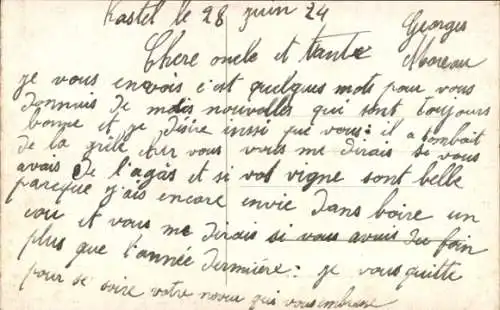 Kastel le 28 juin 24
Georges
Moreau
Chere oncle et tante
je vous envois c'est quelques mots pour vous
donnais de mes nouvelles qui sont toujours
bonne et je désire inssi que vous: il a tombait
de la grêle sur vous vous me dirais si vous
avais de l'agas et si vot vigne sont belle
parceque j'ais encore envie dans boire un
cou et vous me dirais si vous avais du foin
plus que l'année dermiére: je vous quitte
pour se soire votre neveu qui vous embrasse